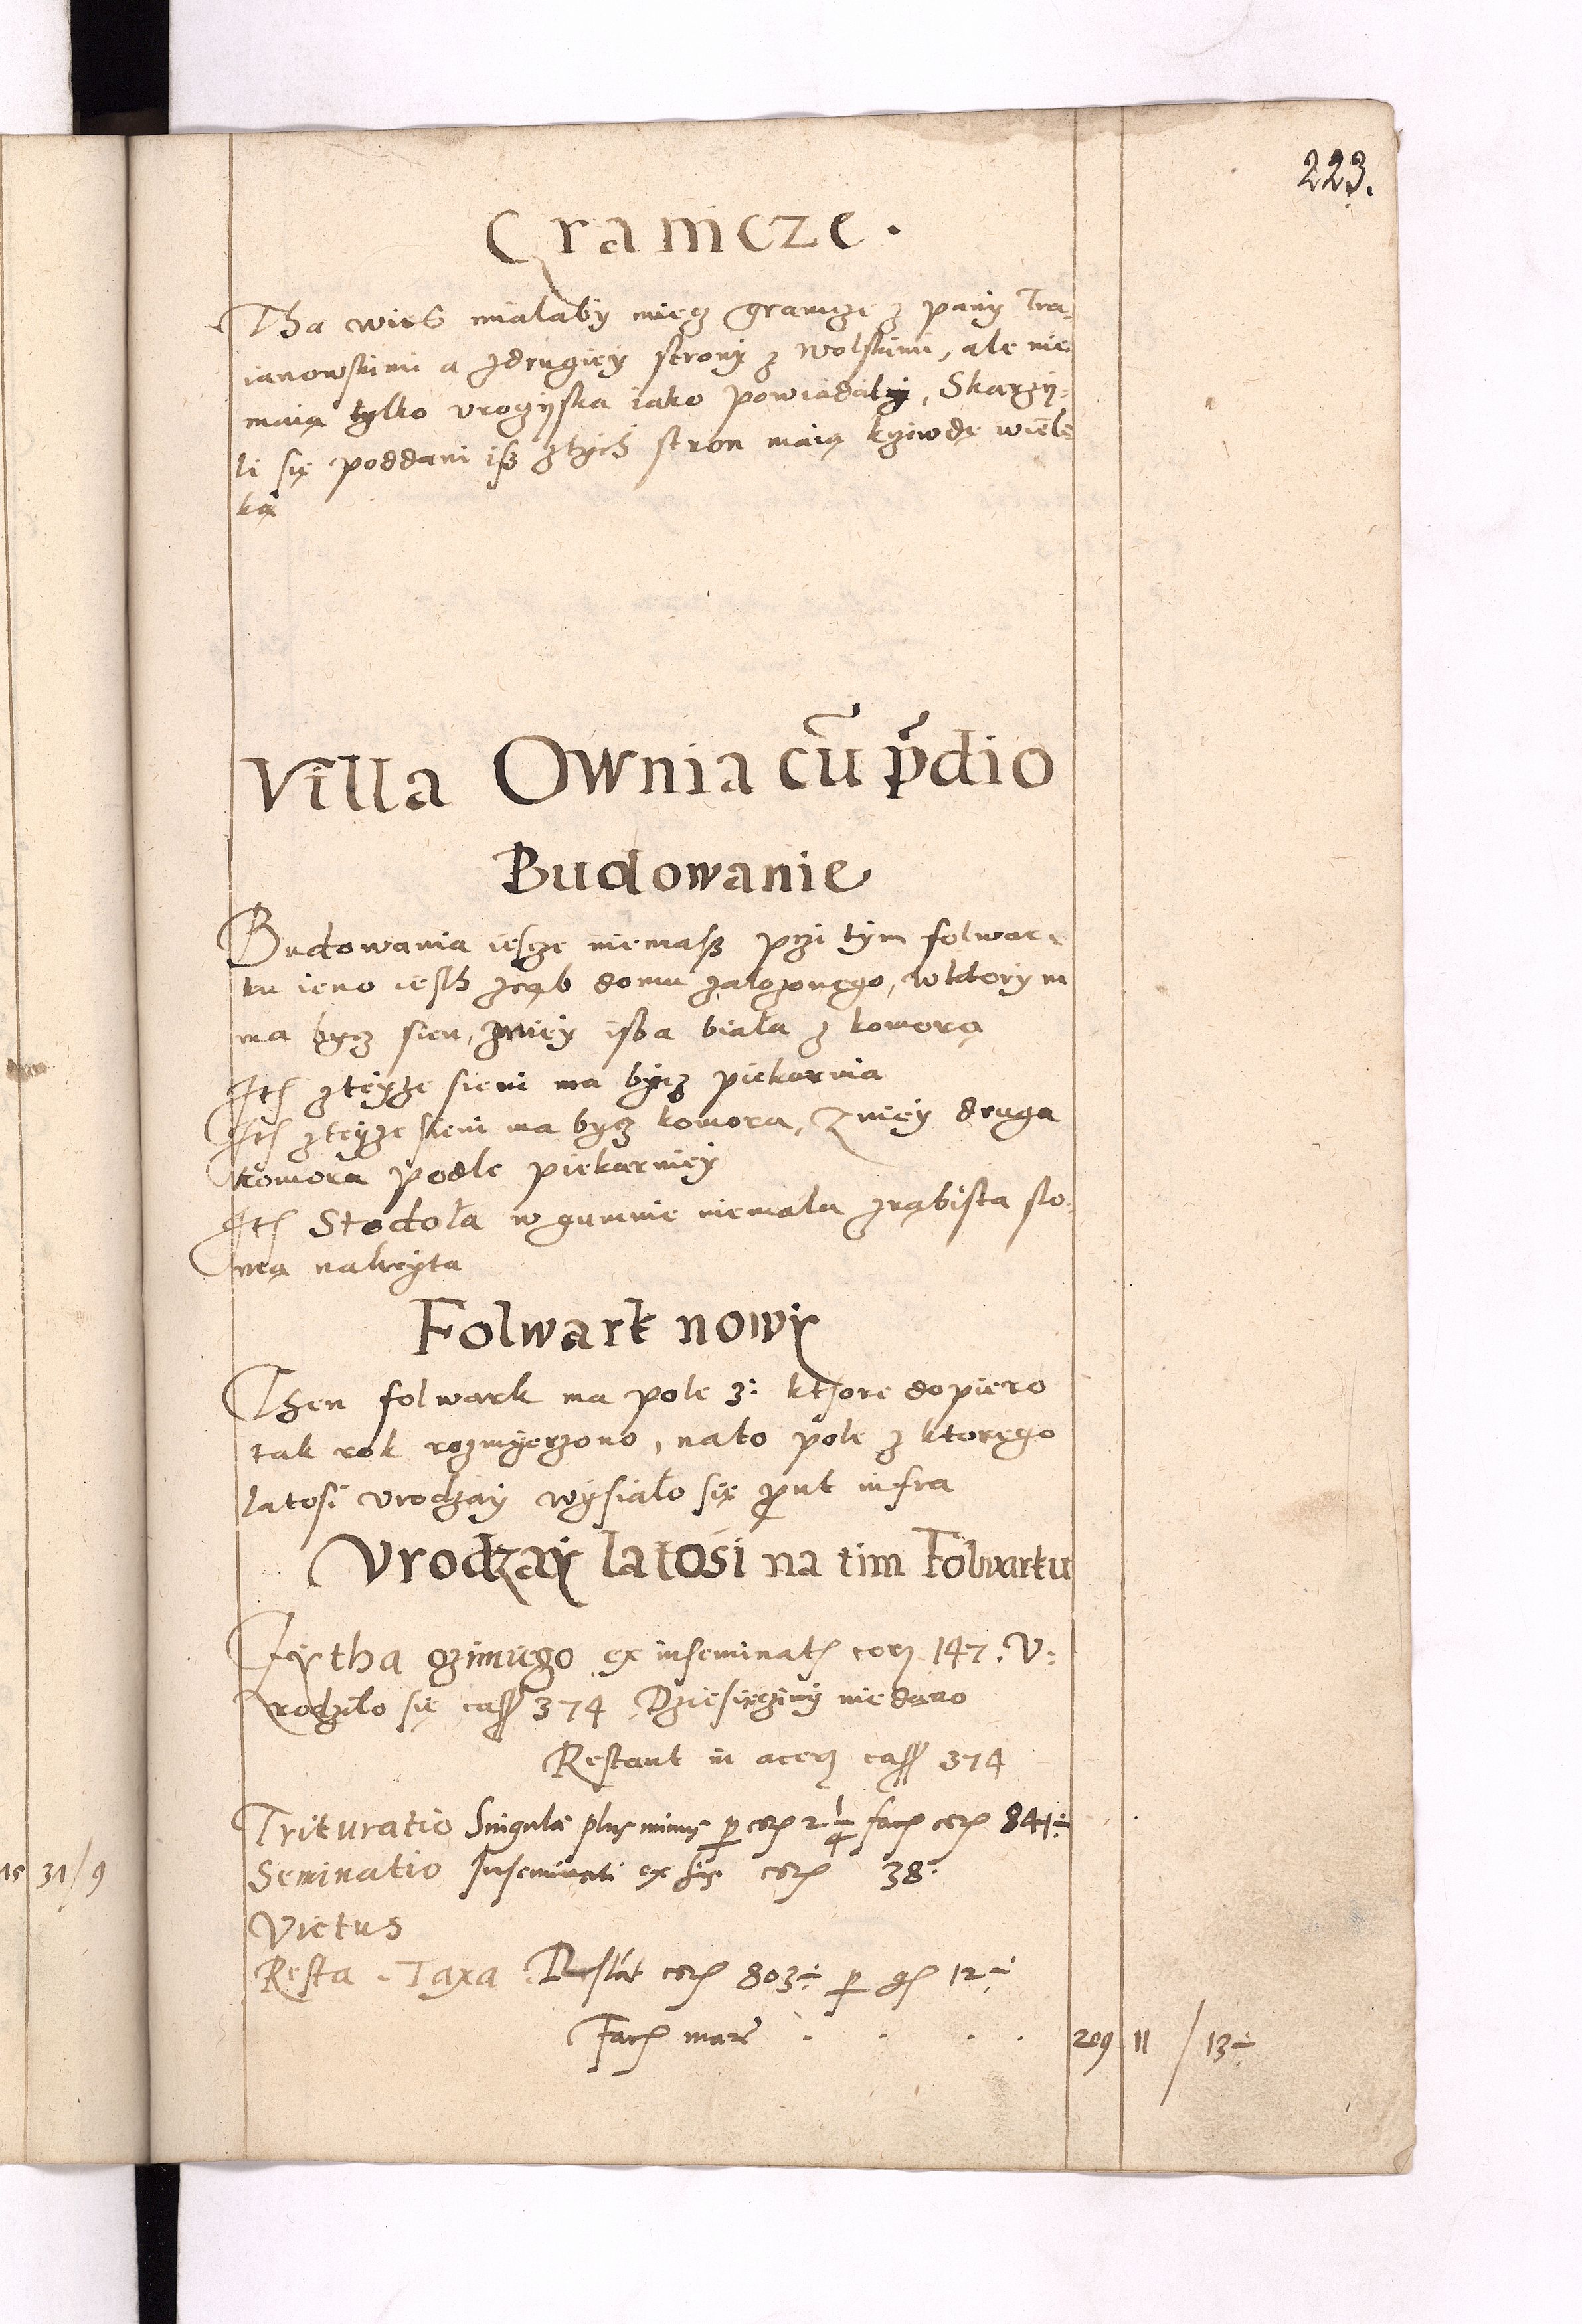 223.
Graniicze.
Tha wies mialaby miecz granicze z pany Tra⸗
ianowskimi a zdrugiey strony z Wolskimi, ale nie
maią tylko vroczyska iako powiadaly, Skarzy⸗
li się poddani isz ztych stron maią krziwdę wiel⸗
ką
Villa Ownia cũ p̃dio
Budowanie
Budowania iescze niemasz przi tym folwar⸗
ku ieno iesth zrąb domu zalozonego, wktorym
ma bycz sien, zniey isba biała z komorą
Itẽ zteyze sieni ma bycz piekarnia
Itẽ zteyze sieni ma bycz komora, Z niey druga
komora podle piekarniey
Itẽ Stodoła w gumnie niemala zrąbista slo⸗
mą nakryta
Folwark nowy
Then folwark ma pole 3: kthore dopiero
tak rok rozmyerzono, na to pole z ktorego
latosi vrodzay wysiało się ꝓut infra
Vrodzay latosi na tim Folwarku
Zytha ozimiego ex inseminatẽ corꝫ 147. V⸗
rodziło się cass 374 Dziesięciny niedano
Restant in acerꝫ cass 374
Trituratio Singula plus minus ꝑ corẽ 2 1/4 facẽ corẽ 841÷
Seminatio Inseminati ex his corẽ 38.
Victus
Resta. Taxa Restãt corẽ 803÷ ꝑ gẽ 12÷
Facẽ marc̃ . . . . 209 11 / 13÷
31/9